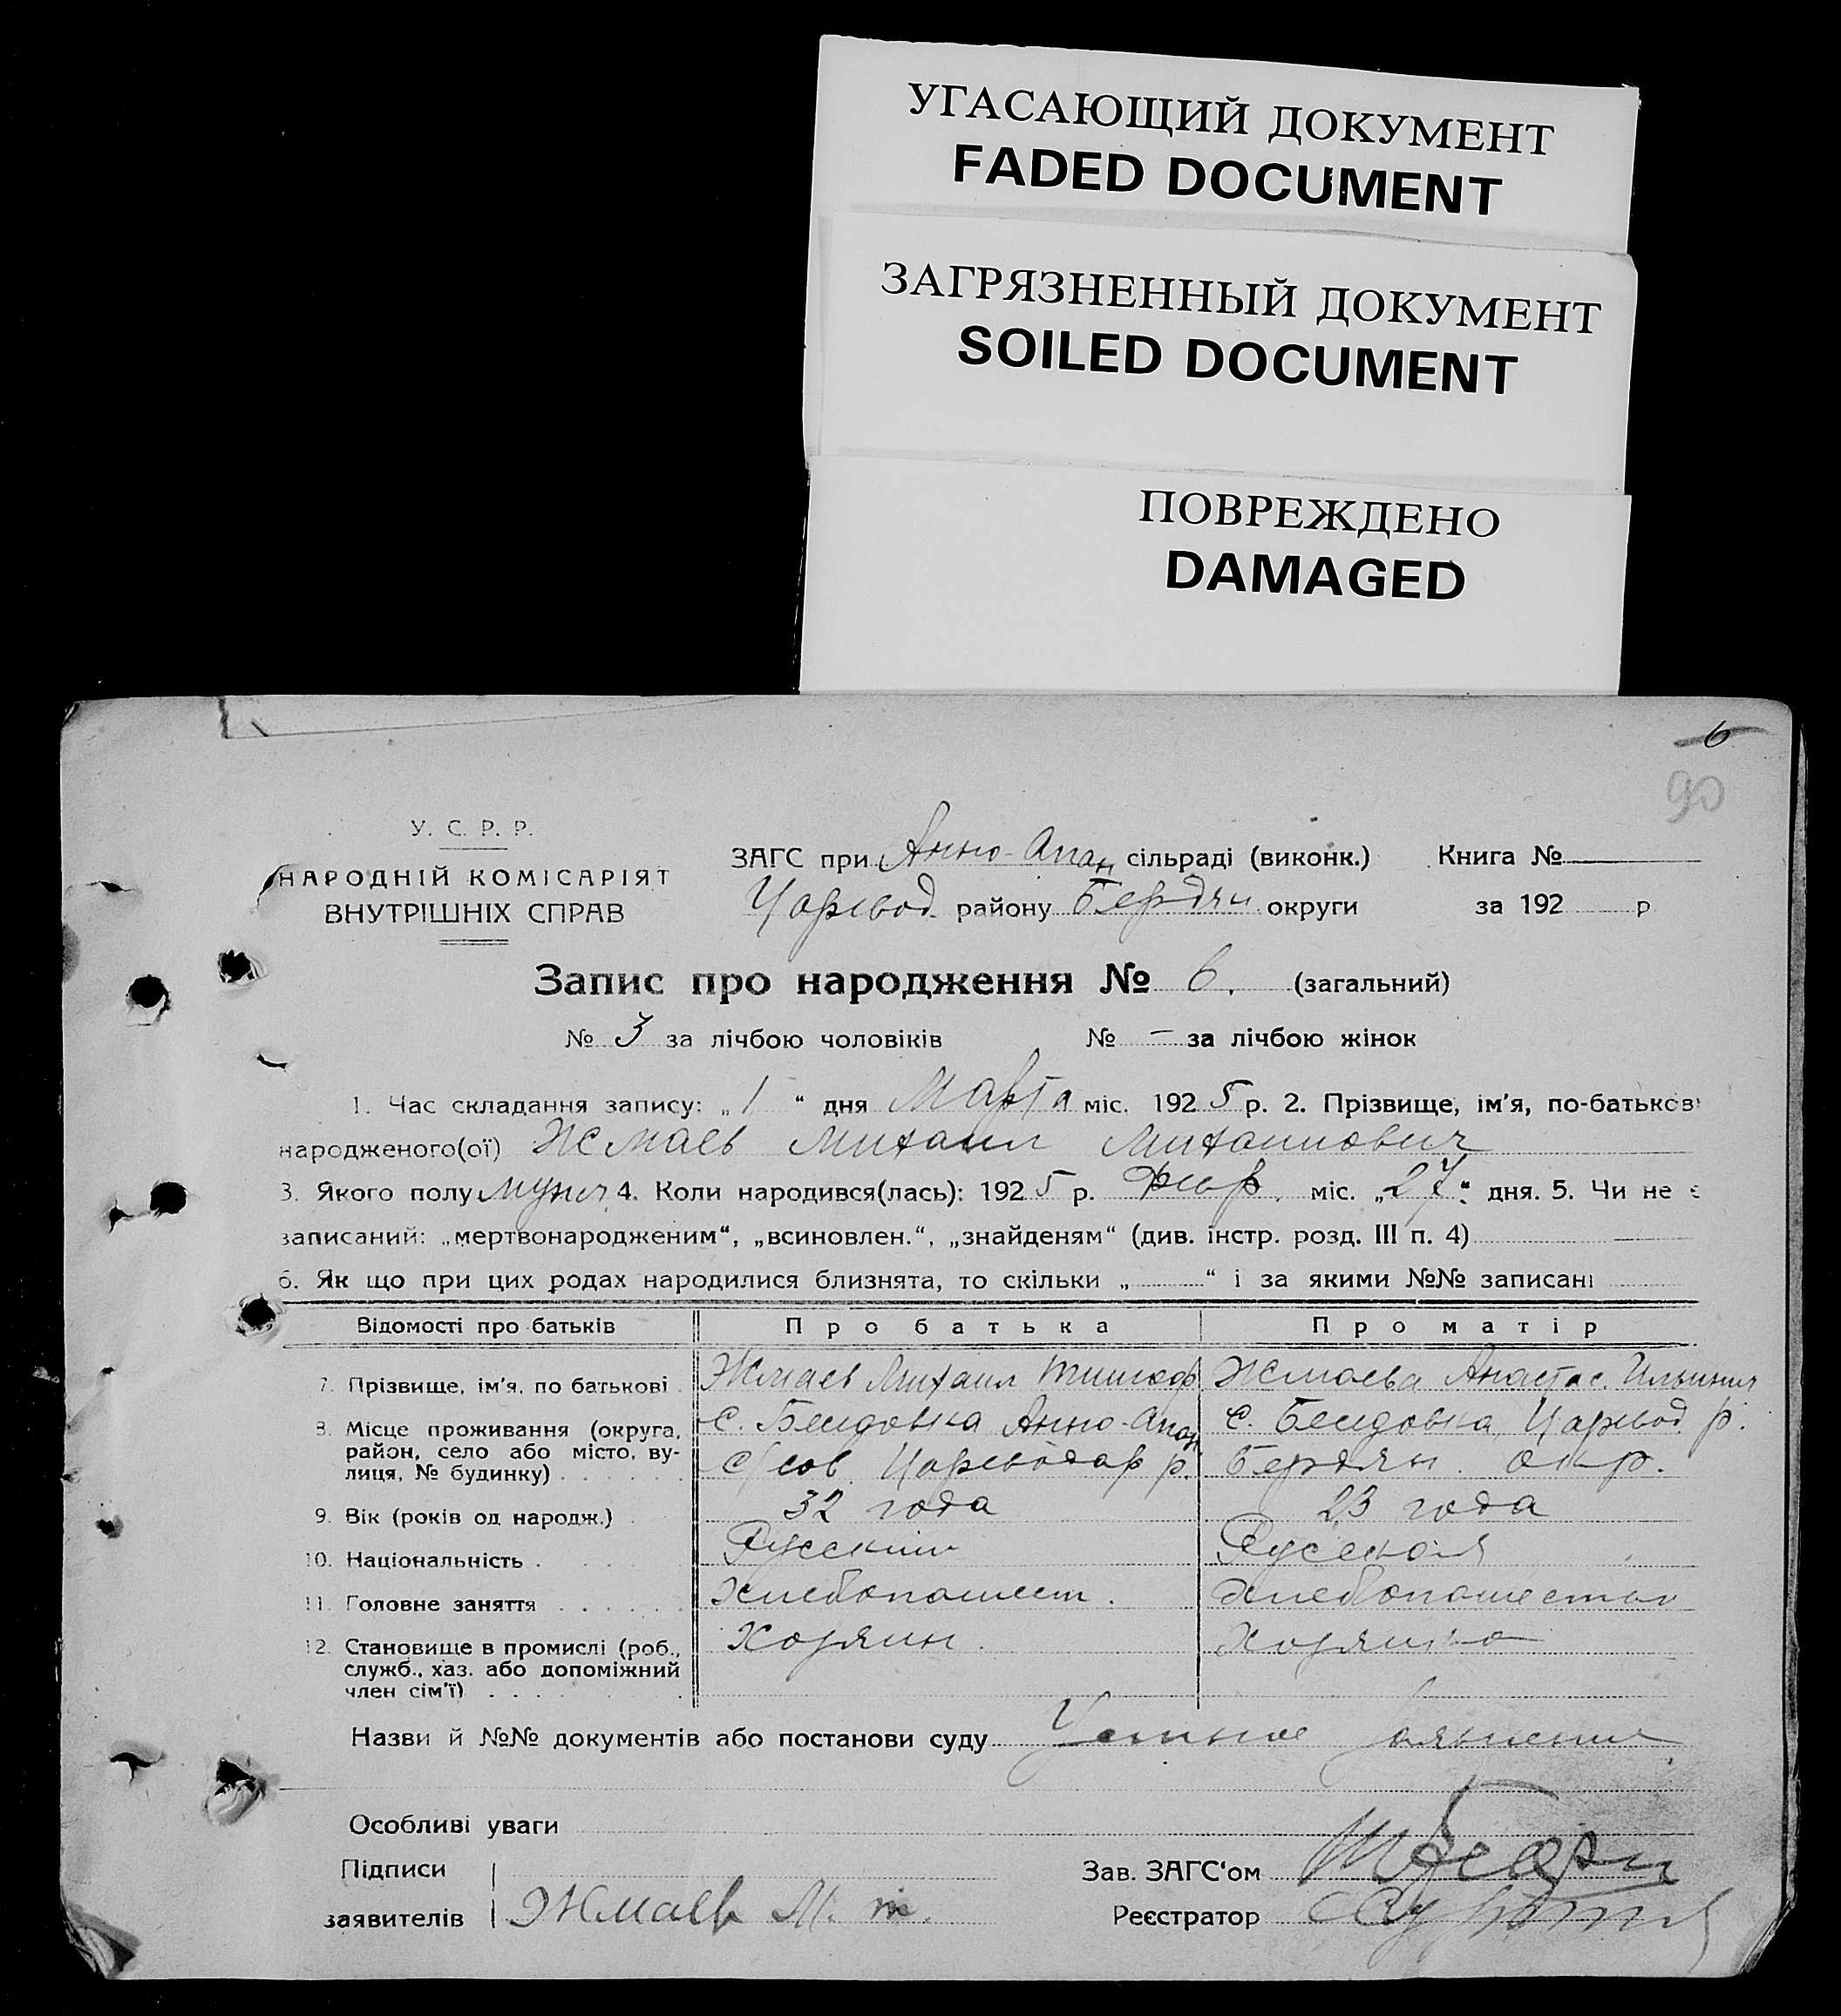 УГАСАЮЩИЙ ДОКУМЕНТ
FADED DOCUMENT
ЗАГРЯЗНЕННЫЙ ДОКУМЕНТ
SOILED DOCUMENT
ПОВРЕЖДЕНО
DAMAGED
6
90
У. С. Р. Р.
НАРОДНІЙ КОМІСАРІЯТ
ВНУТРІШНІХ СПРАВ
ЗАГС при Анно-Опан сільраді (виконк.) Книга №
Царевод. району Бердян. округи за 192 р
Запис про народження № 6. (загальний)
№ 3 за лічбою чоловіків № — за лічбою жінок
1. Час складання запису: „1“ дня Марта міс. 1925 р. 2. Прізвище, ім'я, по-батькові
народженого(ої) Жмаев Михаил Михаилович
3. Якого полу мужч 4. Коли народився(лась): 1925 р. Февр. міс. „27“ дня. 5. Чи не є
записаний: „мертвонародженим“, „всиновлен.“, „знайденям“ (див. інстр. розд. III п. 4)
6. Як що при цих родах народилися близнята, то скільки „ “ і за якими №№ записані
Відомості про батьків Про батька Про матір
7. Прізвище, ім'я, по батькові Жмаев Михаил Тимоф Жмаева Анастас. Ильинич
8. Місце проживання (округа, район, село або місто, вулиця, № будинку) с. Анно-Опан с. Царевод. р.
с/сов. Цареводар р. Бердян. окр.
9. Вік (років од народж.) 32 года 23 года
10. Національність Русский Русская
11. Головне заняття Хлебопашест. Хлебопашество
12. Становище в промислі (роб., служб., хаз. або допоміжний член сім'ї) Хозяин. Хозяйка
Назви й №№ документів або постанови суду Устное заявление
Особливі уваги
Підписи
заявителів Жмаев М. Т.
Зав. ЗАГС'ом
Реєстратор